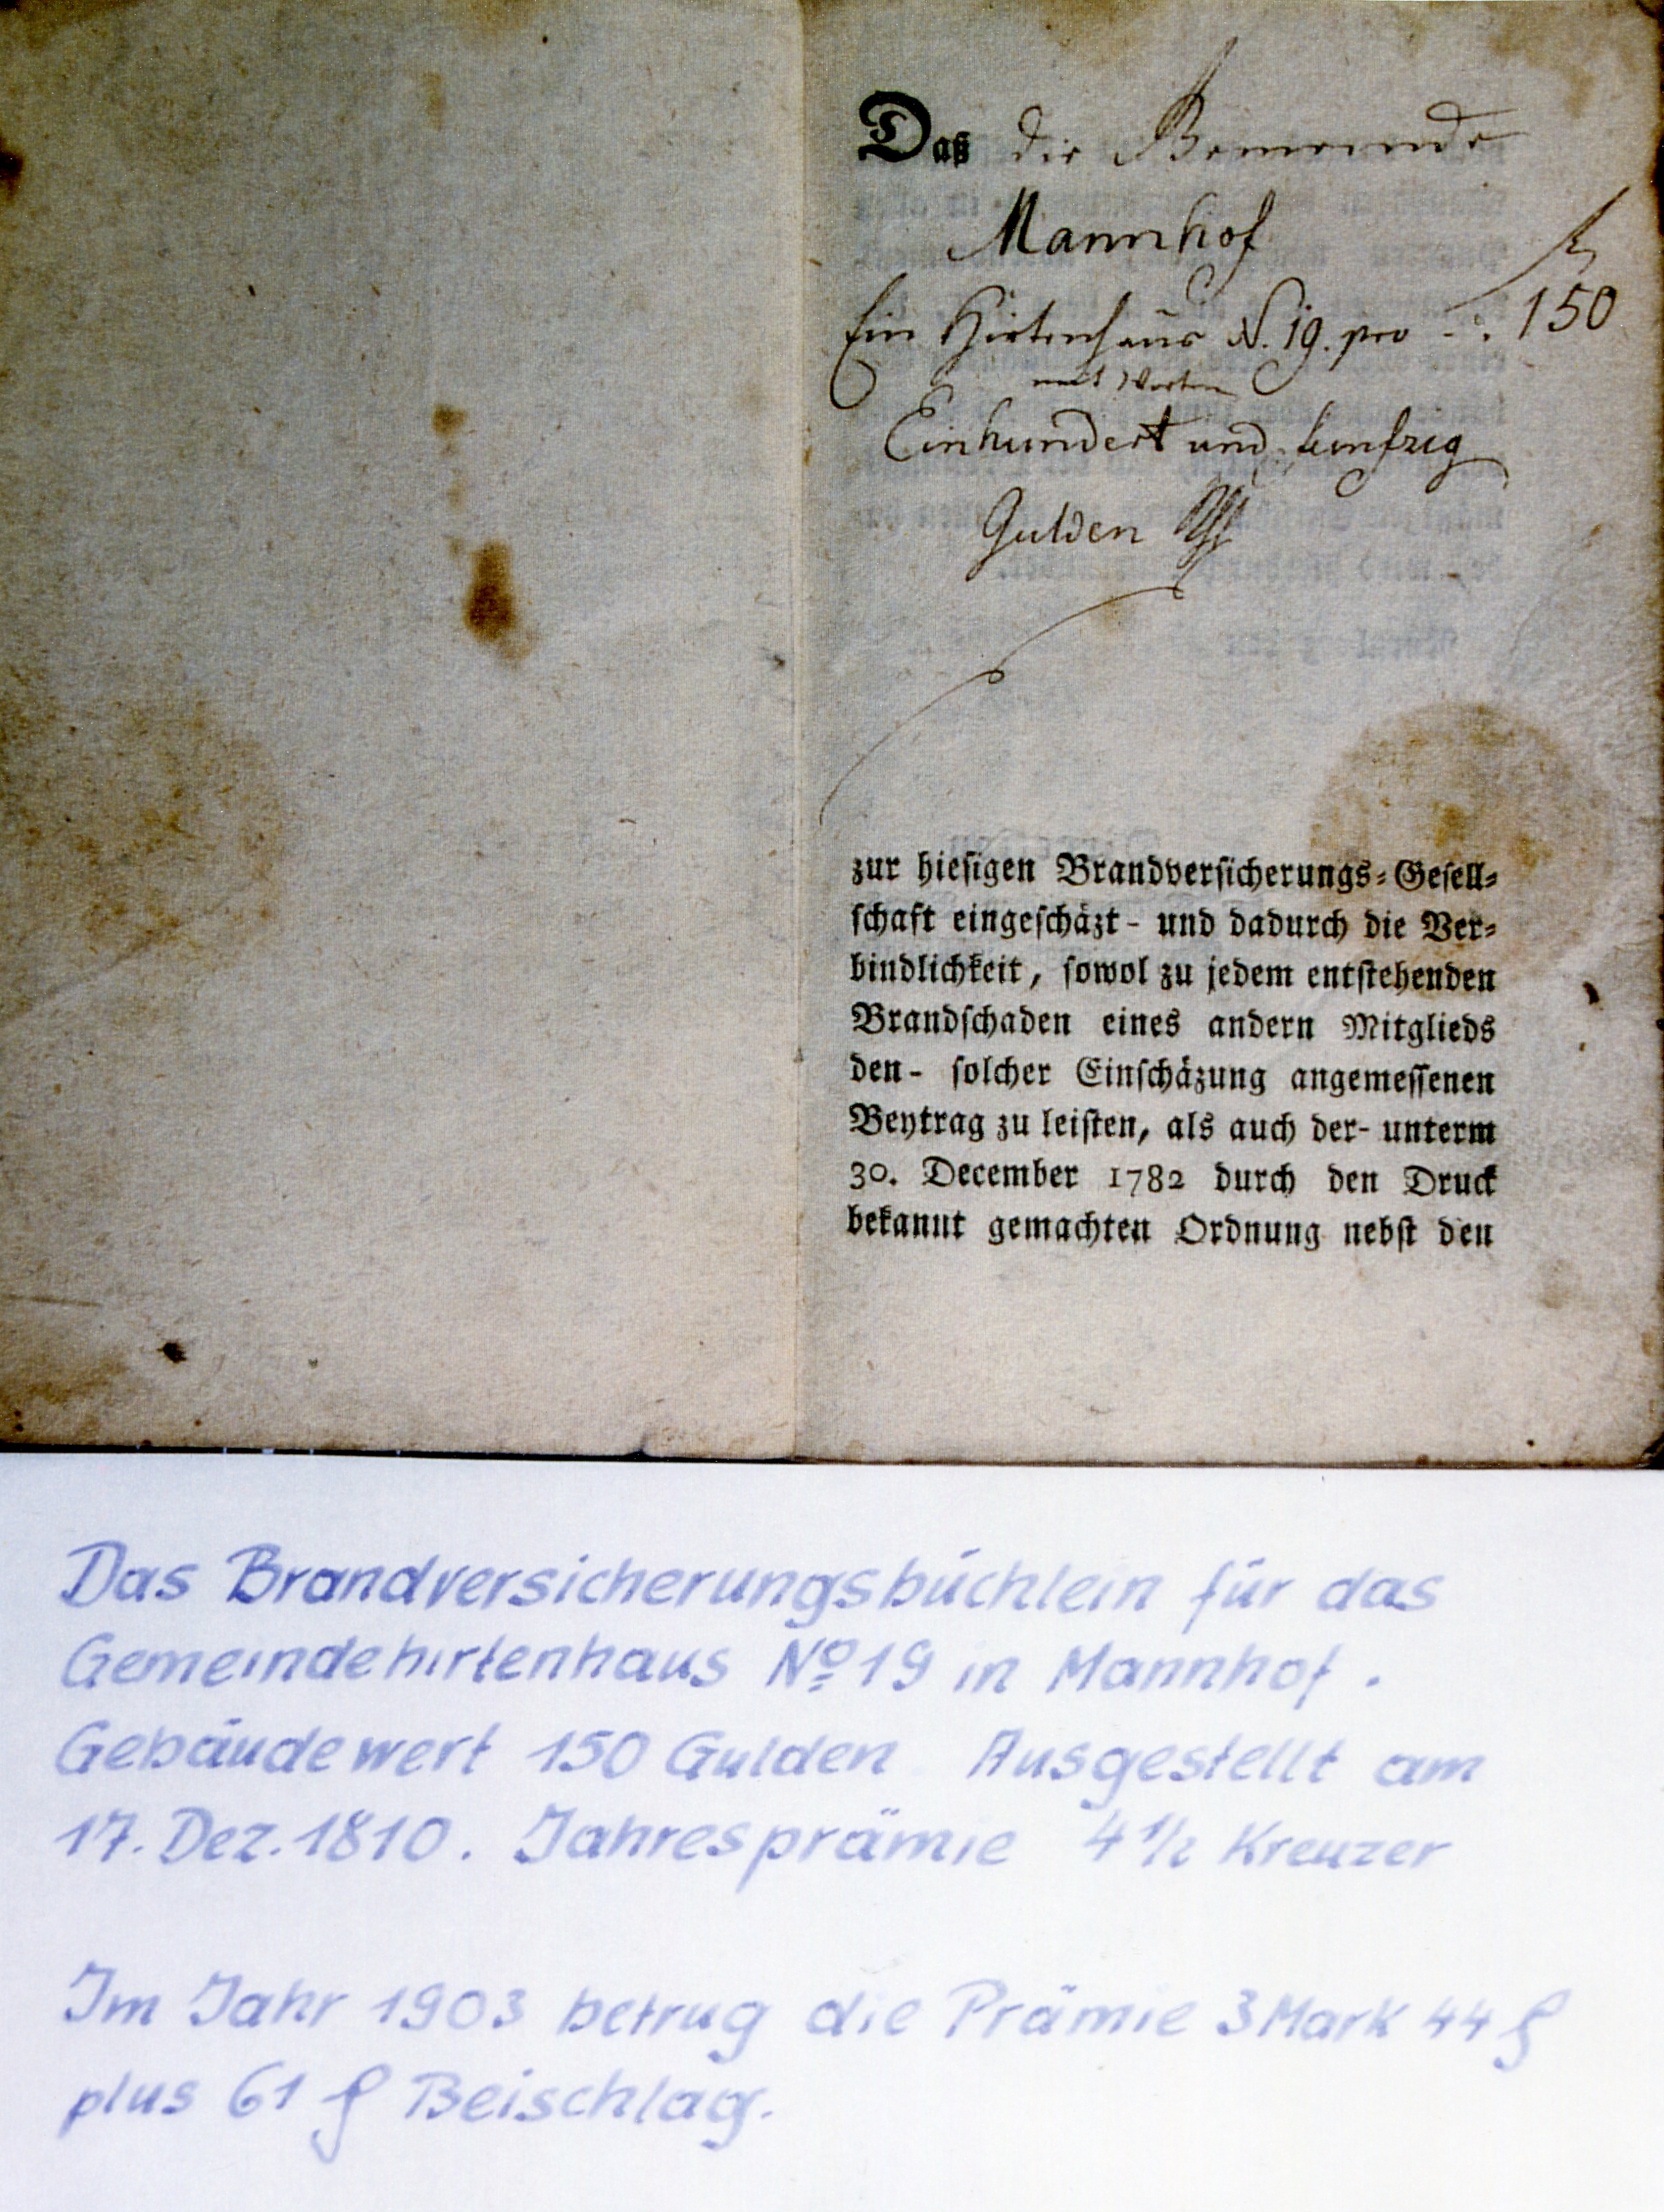 Daß die Gemeinde
Mannhof
fl
Ein Hirtenhaus N. 19. pro -. 150
mit Worten
Einhundert und funfzig
Gulden
zur hieſigen Brandverſicherungs-Geſell-
ſchaft eingeſchäzt - und dadurch die Ver-
bindlichkeit, ſowol zu jedem entſtehenden
Brandſchaden eines andern Mitglieds
den- ſolcher Einſchäzung angemeſſenen
Beytrag zu leiſten, als auch der- unterm
30. December 1782 durch den Druck
bekannt gemachten Ordnung nebſt den
Das Brandversicherungsbüchlein für das
Gemeindehirtenhaus Nº 19 in Mannhof.
Gebäudewert 150 Gulden Ausgestellt am
17. Dez. 1810. Jahresprämie 4 1/2 Kreuzer
Im Jahr 1903 betrug die Prämie 3 Mark 44 ₰
plus 61 ₰ Beischlag.